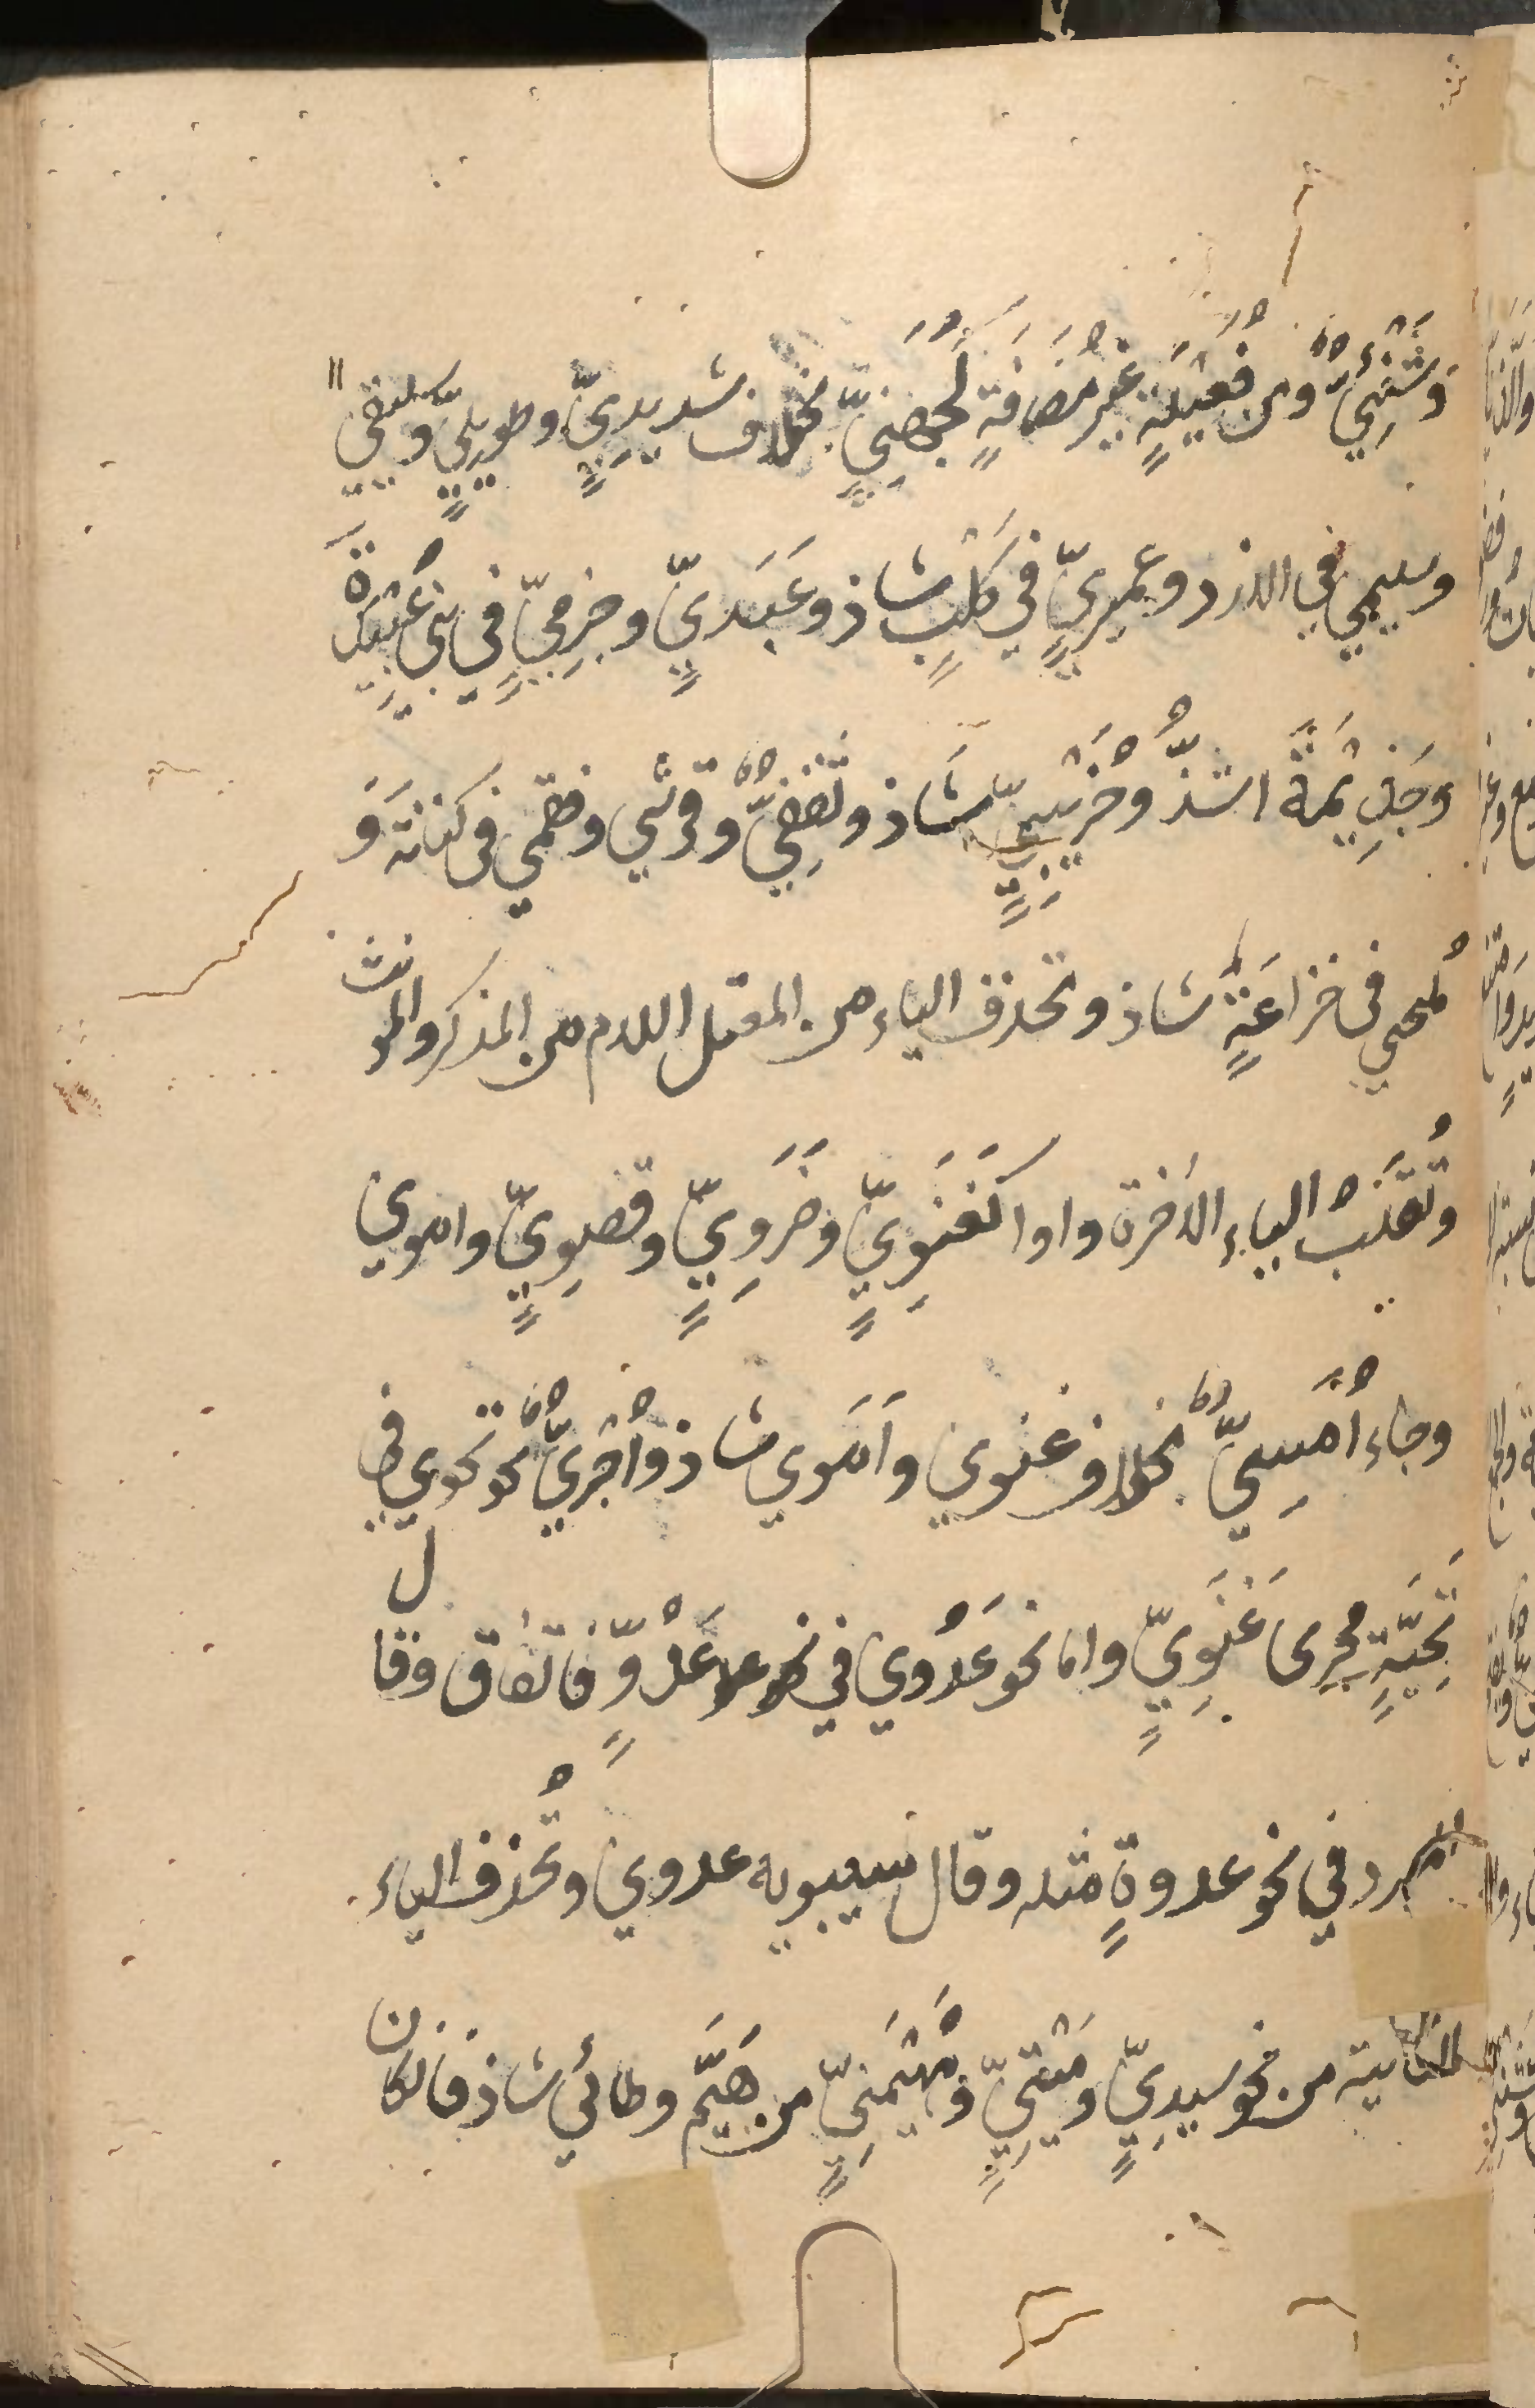 وَشَنَئِيٌّ وَمن فُعَيْلَةٍ غَيْرِ مُضَافَةٍ كَجُهَنِيٍّ بخلاف شديدِيٍّ وطويلِيٍّ وسليقي
وسليمي في الازد وعميريٍّ في كَلْبٍ شاذ وعَبَدِيٍّ وجزمِيٍّ في بني عَبِيدَةَ
وَجَذِيْمَةَ اشذُّ وَخُرَيْبِيٍّ شَاذ وثَقَفِيٌّ وقرشي وفقمي في كنانة وَ
مُلحي في خزاعَةٍ شاذ وتحذف الياء من المعتل اللام من المذكر والمونث
وَتُقْلَبُ الياء الأخرة واوا كَغَنَوِيٍّ وَضَرَوِيٍّ وقصوِيٍّ واموي
وجاء أُمَيِّيٌّ بخلاف غنوي وأَمَوي شاذ وأُجْرِيٌّ نحو تحوي في
تَحِيَّةٍ مجرى غَنَوِيٍّ واما نحو عَدُوي في عَدُوٍّ فاتفاق وقال
المبرد في نحو عدوةٍ مثله وقال سيبويه عدوي وتُحذف الياء
الثانية من نحو سيدِيٍّ ومَيْتِيٍّ وَمُهَيْمِيٍّ من هَيَّمَ وطائي شاذ فان كان